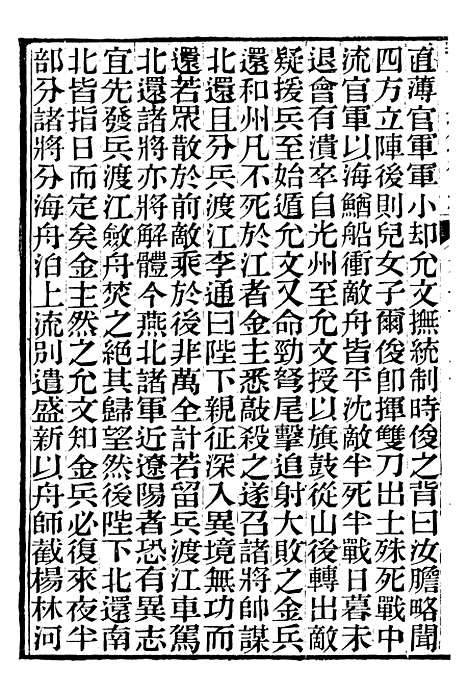 直薄官軍軍小却允文撫統制時俊之背曰汝膽略聞
四方立陣後則兒女子爾俊卽揮雙刀出士殊死戰中
流官軍以海鰌船衝敵舟皆平沈敵半死半戰日暮未
退會有潰卒自光州至允文授以旗鼓從山後轉出敵
疑援兵至始遁允文又命勁弩尾擊追射大敗之金兵
還和州凡不死於江者金主悉敲殺之遂召諸將帥謀
北還且分兵渡江李通曰陛下親征深入異境無功而
還若眾散於前敵乘於後非萬全計若留兵渡江車駕
北還諸將亦將解體今燕北諸軍近遼陽者恐有異志
宜先發兵渡江斂舟焚之絕其歸望然後陛下北還南
北皆指日而定矣金主然之允文知金兵必復來夜半
部分諸將分海舟泊上流別遣盛新以舟師截楊林河